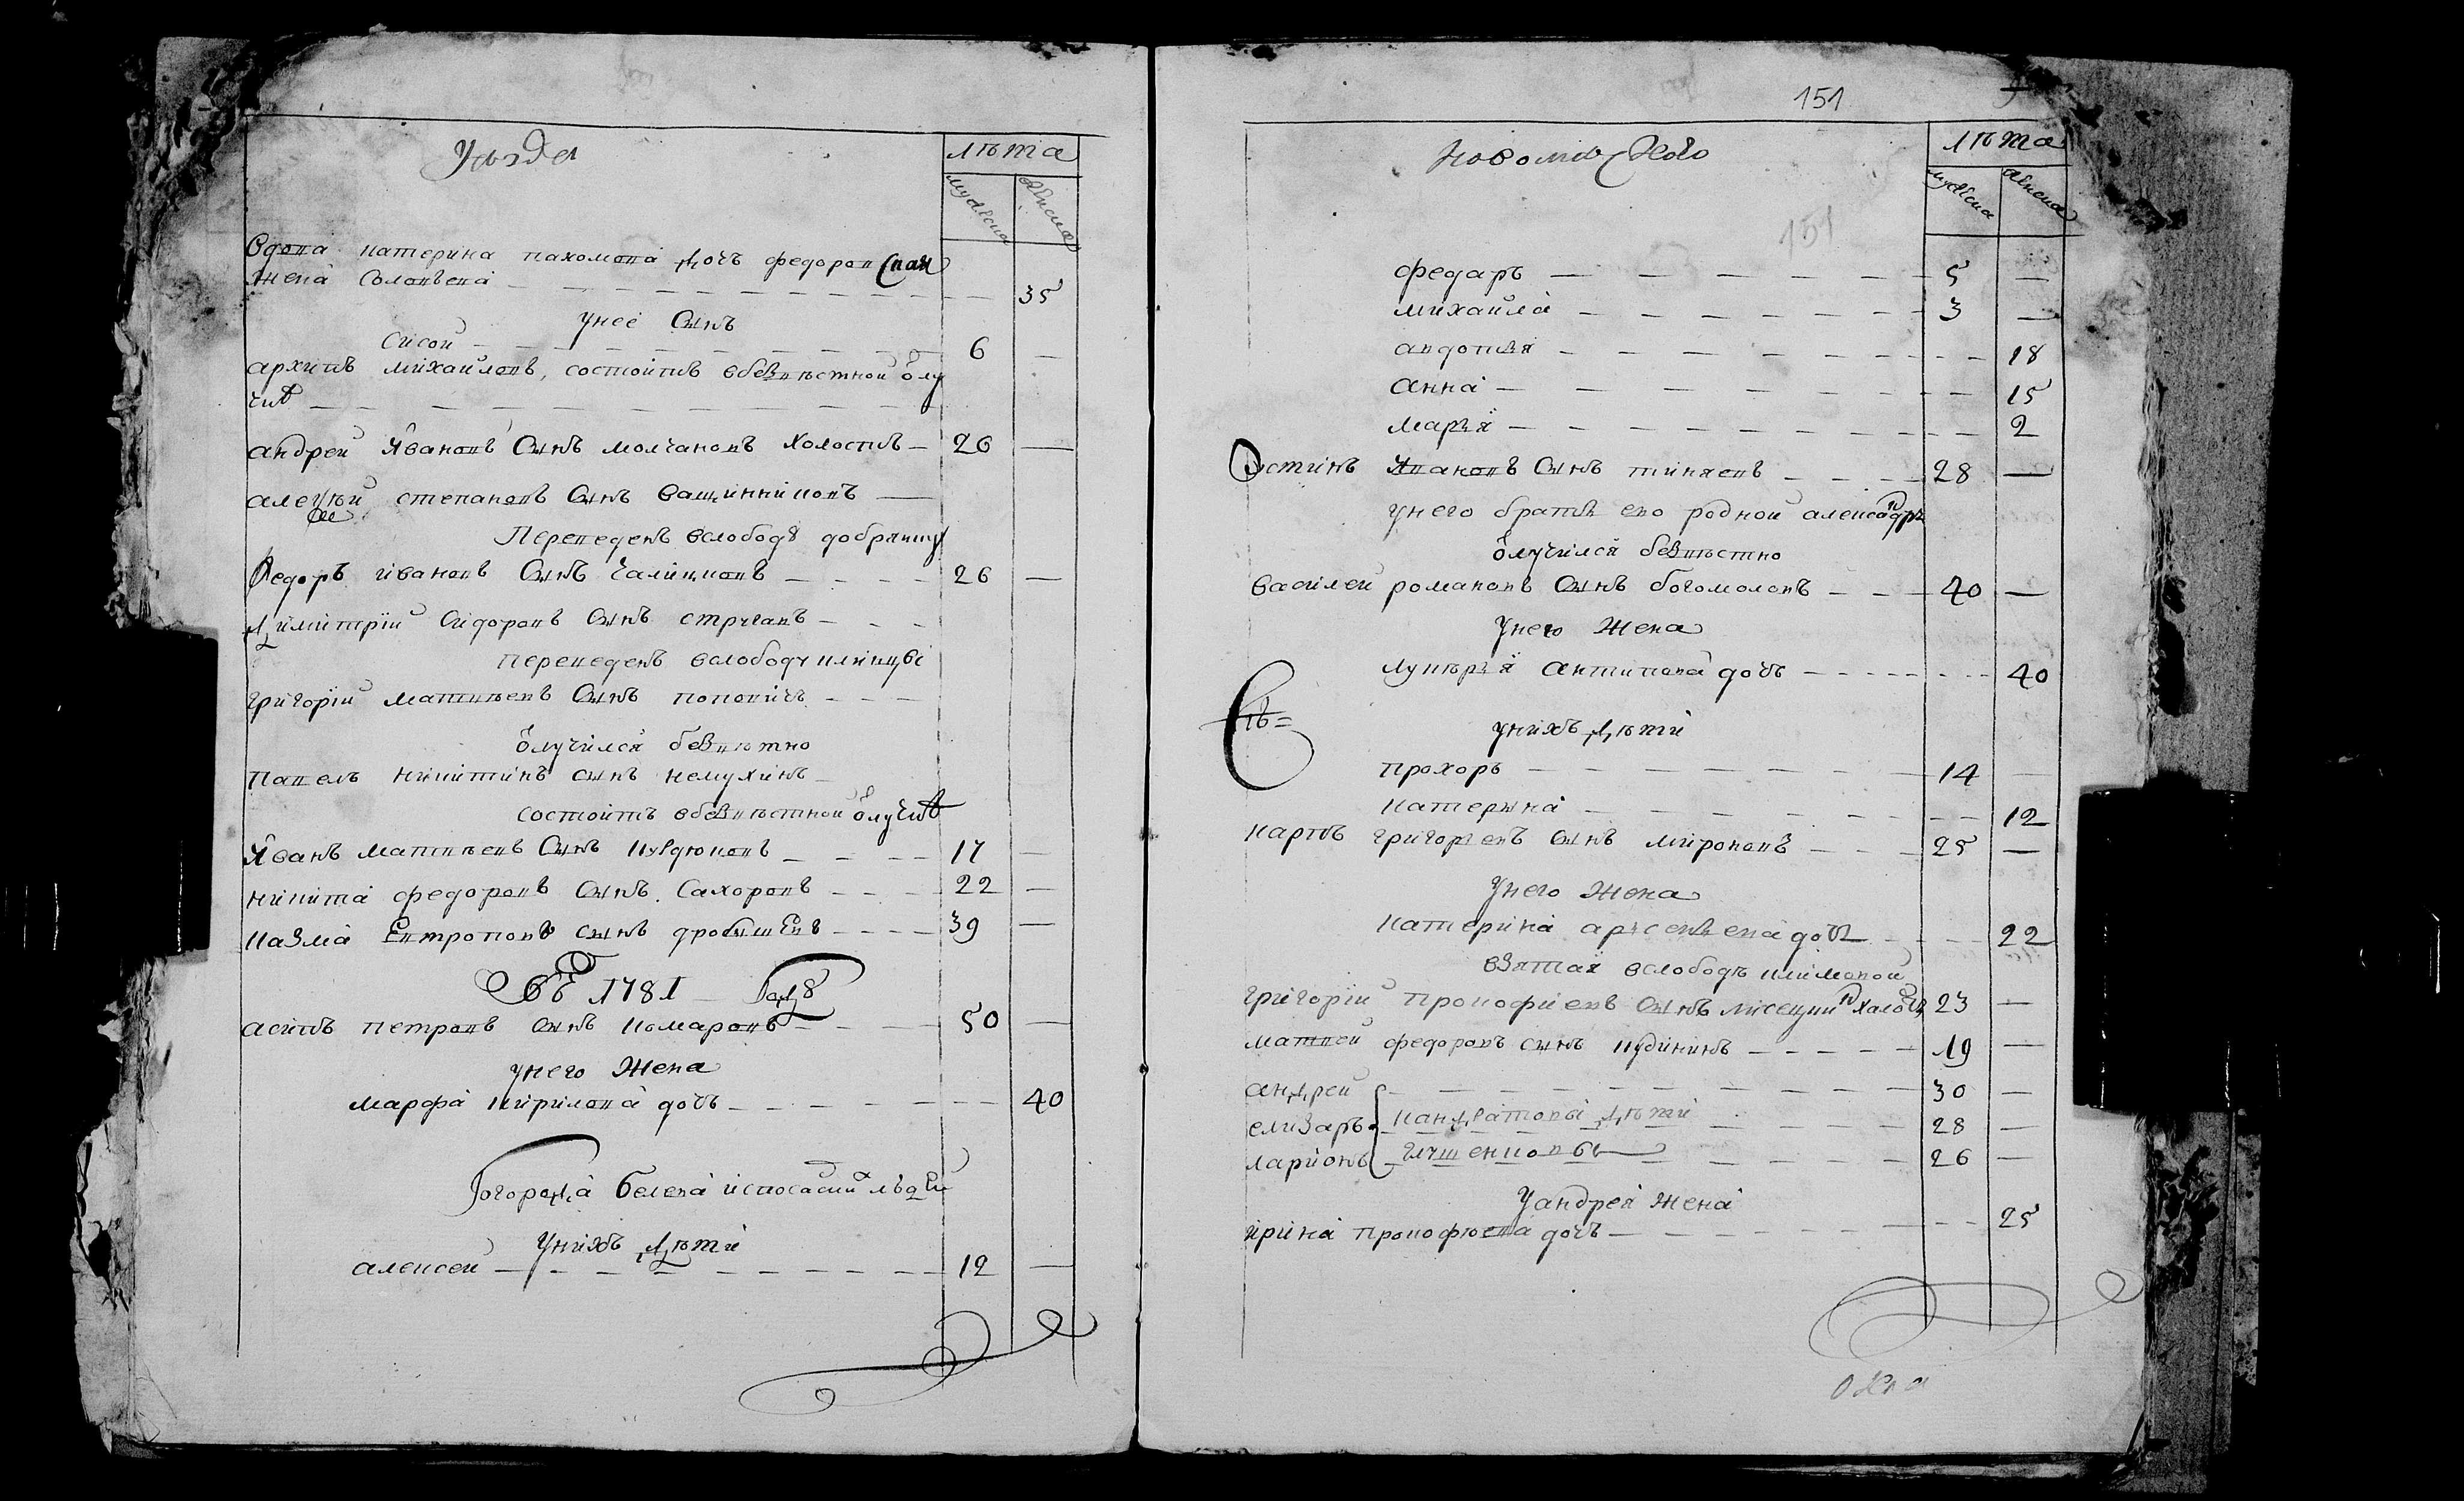 Уѣзда
лѣта
мужеска
женска
вдова катерина пахомова дочь федоровская
жена Соловьева 35
унее сынъ
Сисой 6
архипъ михайловъ, состоитъ вбезвѣстной отлу
чкѣ
андрей ивановъ сынъ молчановъ холостъ 26
алеѯѣй степановъ сынъ ващинниковъ
Переведенъ вслободу добрянку
Федоръ ивановъ сынъ Чалицковъ 26
димитрій Сидоровъ сынъ
переведенъ вслободу климову
григорїй матвѣевъ сынъ поповичъ
отлучился безвѣстно
павелъ никитинъ сынъ немухинъ
состоитъ вбезвѣстной отлучкѣ
иванъ матвѣевъ сынъ курдюковъ 17
никита федоровъ сынъ Сахоровъ 22
казма Евтроповъ сынъ дробышевъ 39
въ 1781 году
асипъ петровъ сынъ комаровъ 50
унего жена
марфа кирилова дочь 40
Богорода белева ис посацкихъ людей
унихъ дѣти
алексей 12
151
новомѣсткого
лѣта
мужеска
женска
151
федаръ 5
михайла 3
авдотья 18
анна 15
марья 2
устинъ ивановъ сынъ тиняевъ 28
унего братъ ево родной александръ
отлучился безвѣстно
василей романовъ сынъ богомоловъ 40
унего жена
лукѣрья антипова дочь 40
унихъ дѣти
прохоръ 14
катерына 12
карпъ григорьевъ сынъ мироновъ 25
унего жена
катерина арсеньева дочь 22
взятая вслободѣ климовой
григорїй прокофиевъ сынъ лисецкий холостъ 23
матвей федоровъ сынъ кудининъ 19
андрей 30
елизаръ кандратовы дѣти 28
ларионъ глушенковы 26
уандрея жена
ирина прокофьева дочь 25